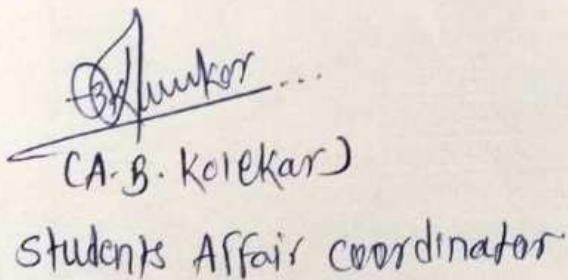 (A.B. Kolekar)
Students Affair coordinator